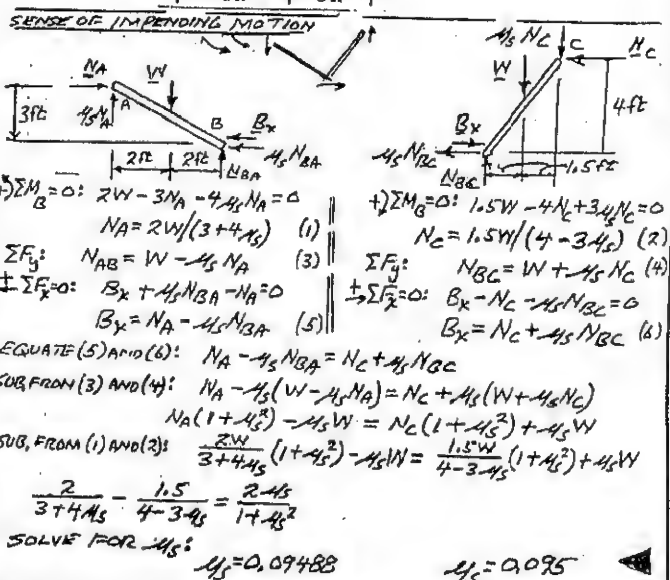 SENSE OF IMPENDING MOTION
N_A W
3ft μ_s N_A A B B_x
μ_s N_BA
2ft 2ft N_BA
μ_s N_C C N_C
W
4ft
B_x
μ_s N_BC
N_BC 1.5ft
+) ΣM_B=0: 2W-3N_A-4μ_s N_A=0
N_A=2W/(3+4μ_s) (1)
ΣF_y: N_AB=W-μ_s N_A (3)
ΣF_x=0: B_x+μ_s N_BA-N_A=0
B_x=N_A-μ_s N_BA (5)
+) ΣM_B=0: 1.5W-4N_C+3μ_s N_C=0
N_C=1.5W/(4-3μ_s) (2)
ΣF_y: N_BC=W+μ_s N_C (4)
ΣF_x=0: B_x-N_C-μ_s N_BC=0
B_x=N_C+μ_s N_BC (6)
EQUATE (5) AND (6): N_A-μ_s N_BA=N_C+μ_s N_BC
SUB, FROM (3) AND (4): N_A-μ_s(W-μ_s N_A)=N_C+μ_s(W+μ_s N_C)
N_A(1+μ_s²)-μ_s W=N_C(1+μ_s²)+μ_s W
SUB, FROM (1) AND (2): 2W/(3+4μ_s) (1+μ_s²)-μ_s W=1.5W/(4-3μ_s) (1+μ_s²)+μ_s W
2/(3+4μ_s) - 1.5/(4-3μ_s) = 2μ_s/(1+μ_s²)
SOLVE FOR μ_s:
μ_s=0.09488 μ_s=0.095